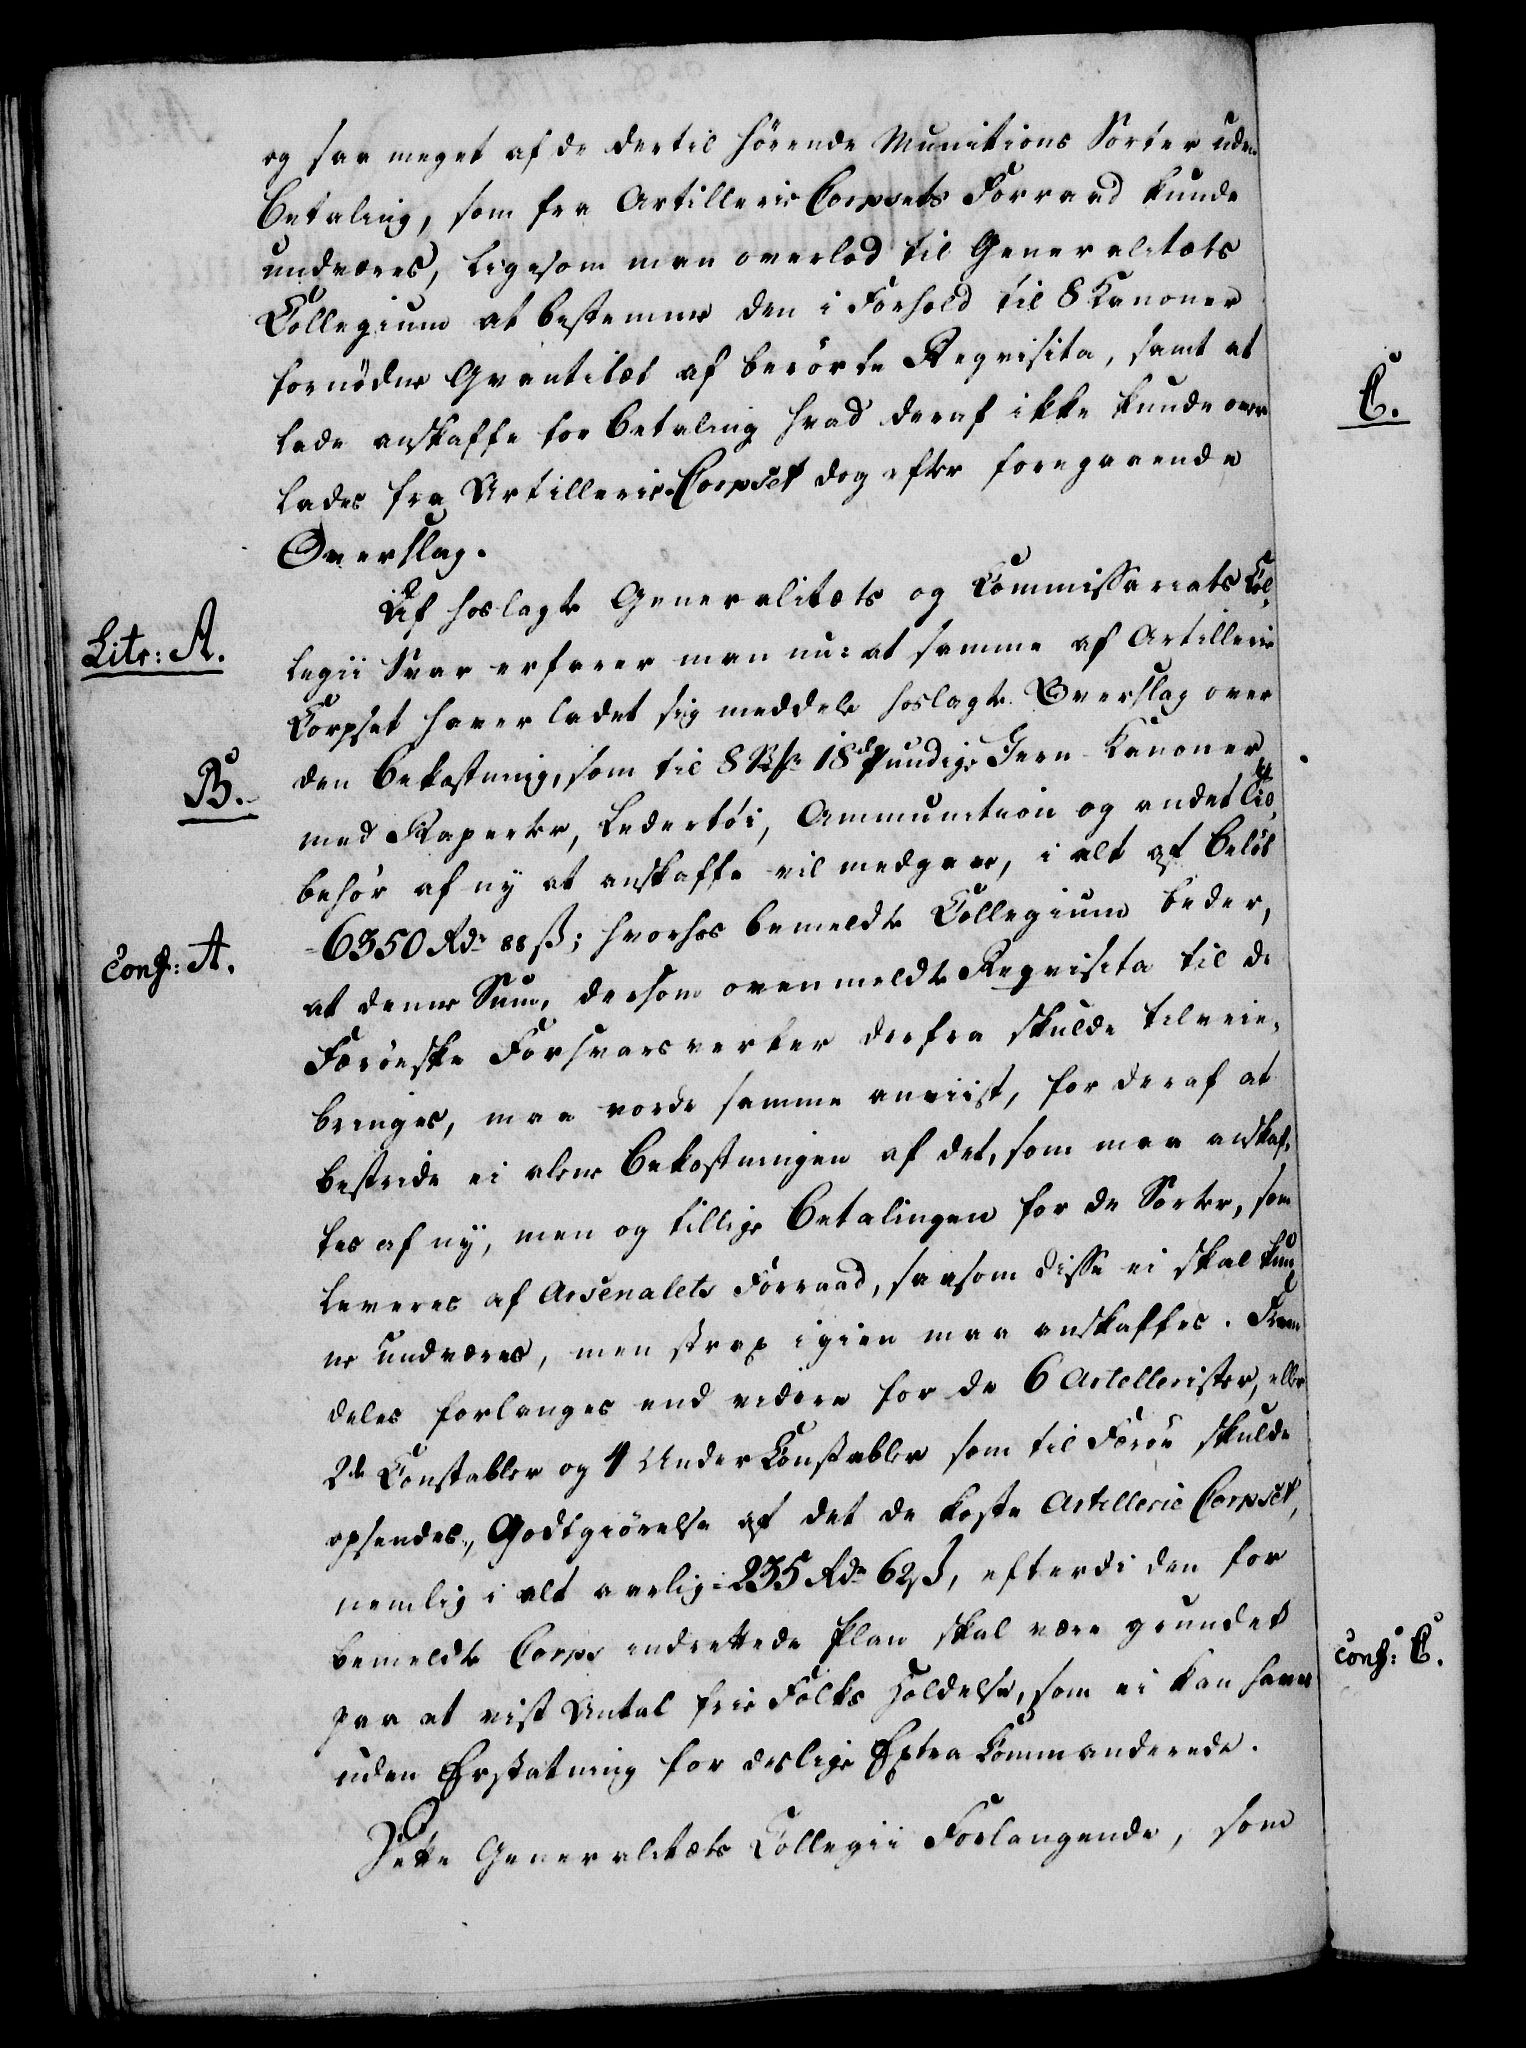 og saa meget af de dertil hörende Munitions Sorter uden
Betaling, som fra Artillerie Corpsets Forraad kunde
undværes, ligesom man overlod til Generalitets
Collegium at bestemme den i Forhold til 8 Kanoner
fornödne Qvantitet af berörte Reqvisita, samt at
lade anskaffe for Betaling hvad deraf ikke kunde over
lades fra Artillerie-Corpset dog efter foregaaende
Overslag.
Af hoslagte Generalitets og Commissariats Col-
Litr: A.
legii Svar erfarer man nu: at samme af Artillerie
Corpset haver ladet sig meddele hoslagte Overslag over
B.
den Bekostning, som til 8 18 pundige Jern-Kanoner
med Raperter, Ledertöi, Ammunition og andet Til-
behör af ny at anskaffe vil medgaae, i alt af Belöb
6350 Rdr 88 ß; hvorhos bemeldte Collegium beder,
Conf: A.
at denne Sum, dersom ovenmeldte Reqvisita til de
Færöeske Forsvarsverker derfra skulde tilveie-
bringes, maa vorde samme anviist, for deraf at
bestride ei alene Bekostningen af det, som maa anskaf-
fes af ny, men og tillige Betalingen for de Sorter, som
leveres af Arsenalets Forraad, saasom disse ei skal kun-
ne undværes, men strax igien maa anskaffes. Frem
deles forlanges end videre for de 6 Artellerister, eller
2de Constabler og 4 Under Constabler som til Færöe skulde
opsendes, Godtgiörelse af det de koste Artillerie Corpset,
nemlig i alt aarlig 235 Rdr 62 ß, efterdi den for
bemeldte Corps indrettede Plan skal være grundet
paa et vist Antal frie Folks Holdelse, som ei kan haves
uden Erstatning for deslige Extra Commanderede.
Dette Generalitets Collegii Forlangende, som
C.
Conf: C.